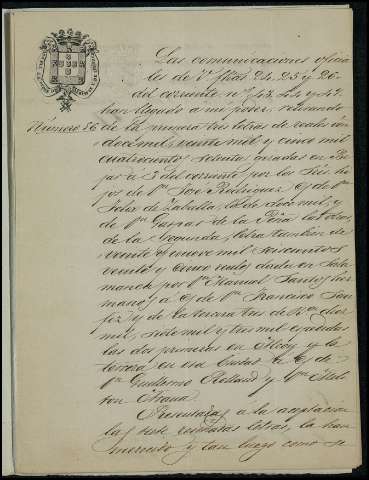 Las comunicaciones oficia
les de V. fhas 24, 25 y 26
del corriente nos 43, 44 y 49
han llegado a mi poder, retirando
Número 86 de la primera tres letras de reales vn
doce mil, veinte mil y cinco mil
cuatrocientos setenta, giradas en
a 3 del corriente por los Sres. hi
jos de Dn. José Rodriguez c/ de Dn.
Felix de Zaballa, la de doce mil, y
de Dn. Gaspar de la Peña las otras,
de la segunda, letra tambien de
veinte y nueve mil seiscientos
veinte y cinco reales dada en Sala
manca por Dn. Manuel Santos her
mano, á c/ de Dn. Francisco
y de la tercera tres de Rvn. diez
mil, siete mil y tres mil
las dos primeras en Alcoy y la
tercera en esa Ciudad a c/ de
Dn. Guillermo Rolland y Dn.
Presentadas á la aceptacion
las siete letras, la han
merecido y tan luego como se